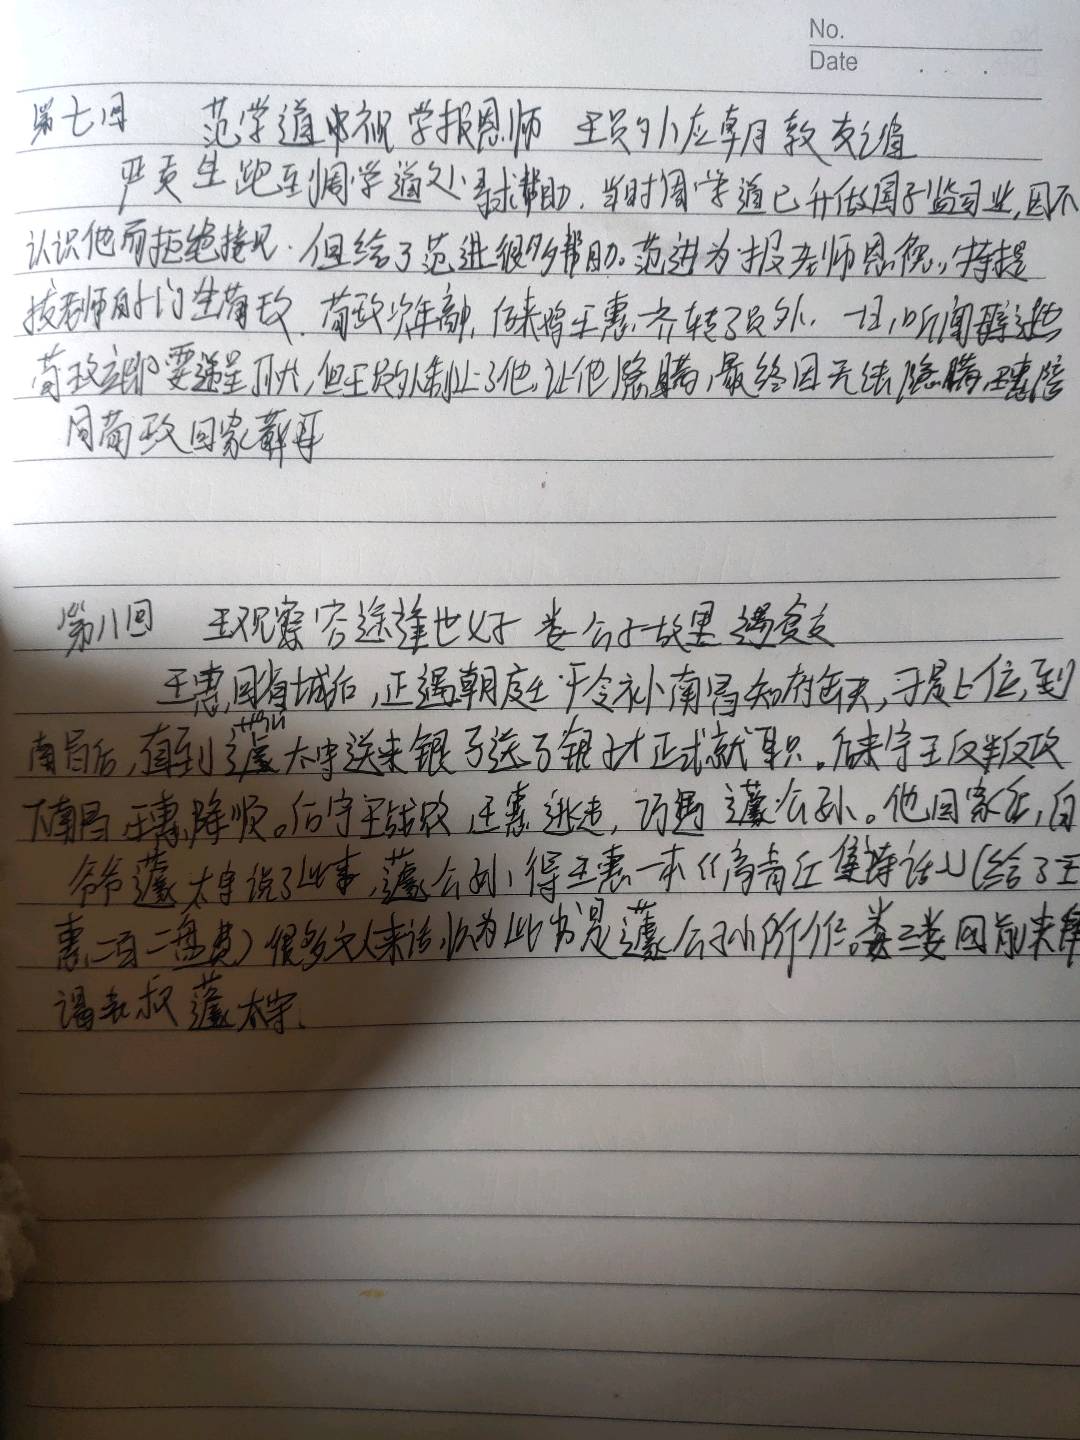 No.
Date
第七回 范学道中视学报恩师 王员外应朝敦友谊
严贡生跑到周学道处寻求帮助.当时周学道已升做国子监司业,因不
认识他而拒绝接见.但给了范进很多帮助。范进为报老师恩德,特提
拔老师的门生荀玫.荀玫年高,后来将王惠一齐转了员外.一日,听闻
荀玫立即要递呈,但王员外制止了他,让他隐瞒,最终因无法隐瞒,王惠陪
同荀玫回家
第八回 王观察穷途逢世好 娄公子故里遇贫交
王惠回省城后,正遇朝廷下令补南昌知府缺,于是上位,到
南昌后,直到蘧太守送来银子送了银才正式就职。后来宁王反叛攻
下南昌,王惠降顺。后宁王战败,王惠逃走,巧遇蘧公孙。他回家后,向
爷爷蘧太守说了此事,蘧公孙得王惠一本《高青丘集诗话》(给了王
惠二百二盘费)很多文人来访,以为此书是蘧公孙所作。娄三娄四前来拜
谒表叔蘧太守.